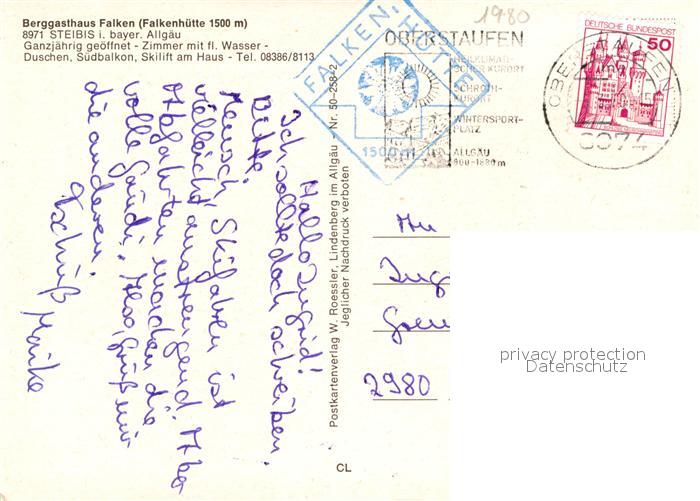 Berggasthaus Falken (Falkenhütte 1500 m)
8971 STEIBIS i. bayer. Allgäu
Ganzjährig geöffnet - Zimmer mit fl. Wasser -
Duschen, Südbalkon, Skilift am Haus - Tel. 08386/8113
1980
FALKEN-HÜTTE
1500 m
OBERSTAUFEN
HEILKLIMAT-
SCHROTH-
KURORT
WINTERSPORT-
PLATZ
ALLGÄU
800-1880 m
DEUTSCHE BUNDESPOST
50
OBERSTAUFEN
8974
Hallo Ingrid!
Ich sollte doch schreiben.
Bitte:
Mensch, Skifahren ist
vielleicht anstrengend. Aber
Abfahrten machen die
volle Gaudi. Also, grüß mir
die anderen.
Tschüß Maike
Postkartenverlag W. Roessler, Lindenberg im Allgäu - Nr. 50-258-2
Jeglicher Nachdruck verboten
CL
An
Ing
2980
privacy protection
Datenschutz